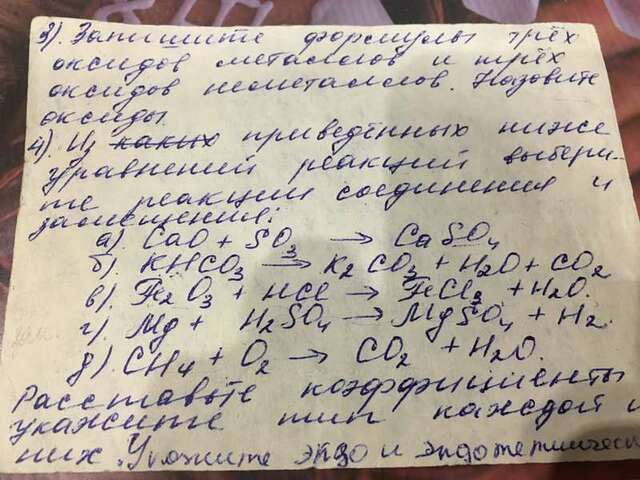 3). Запишите формулы трёх
оксидов металлов и трёх
оксидов неметаллов. Назовите
оксиды.
4). Из каких приведённых ниже
уравнений реакций выбери-
те реакции соединения и
замещения:
а). CaO + SO3 → CaSO4
б). KHCO3 → K2CO3 + H2O + CO2
в). Fe2O3 + HCl → FeCl3 + H2O.
г). Mg + H2SO4 → MgSO4 + H2.
д). CH4 + O2 → CO2 + H2O.
Расставьте коэффициенты
укажите тип каждой и
них. Укажите экзо и эндотермическ